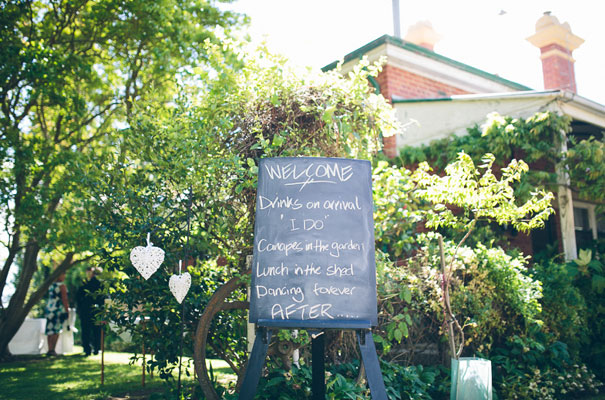 WELCOME
Drinks on arrival
"I DO"
Canapes in the garden
Lunch in the shed
Dancing forever
AFTER.....